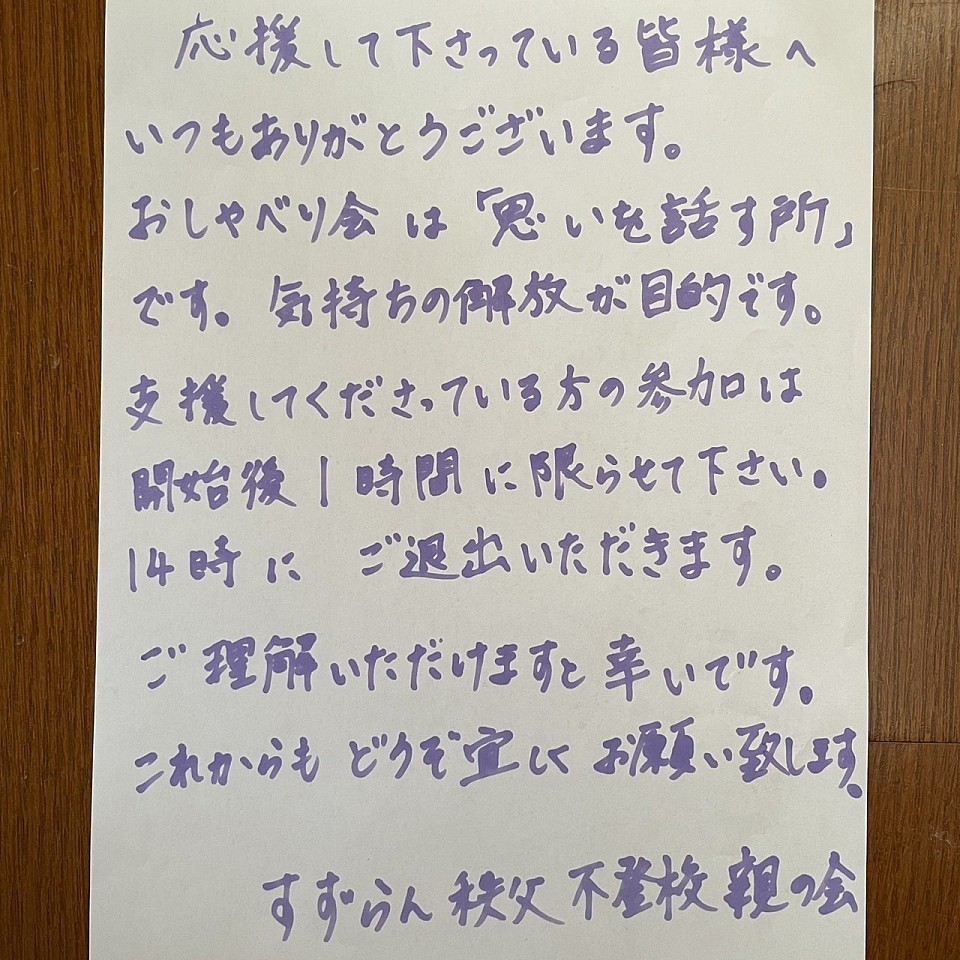 応援して下さっている皆様へ
いつもありがとうございます。
おしゃべり会は「思いを話す所」
です。気持ちの解放が目的です。
支援してくださっている方の参加は
開始後1時間に限らせて下さい。
14時に ご退出いただきます。
ご理解いただけますと幸いです。
これからもどうぞ宜しくお願い致します。
すずらん秩父不登校親の会